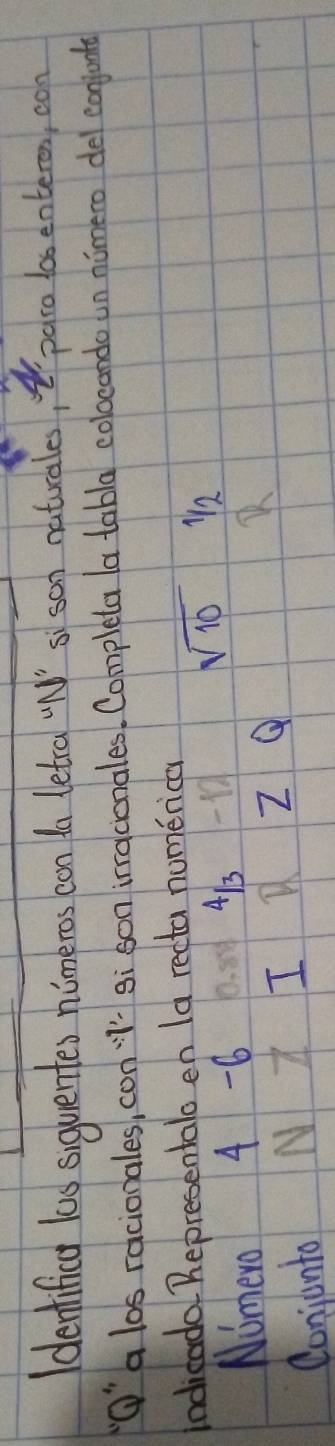 Identifica los siguientes números con la letra "N" si son naturales, "Z" para los enteros, con
"Q" a los racionales, con "I" si son irracionales. Completa la tabla colocando un número del conjunto
indicado. Represéntalo en la recta numérica
Número 4 -6 4/3 -12 √10 1/2
Conjunto N Z I R Z Q R